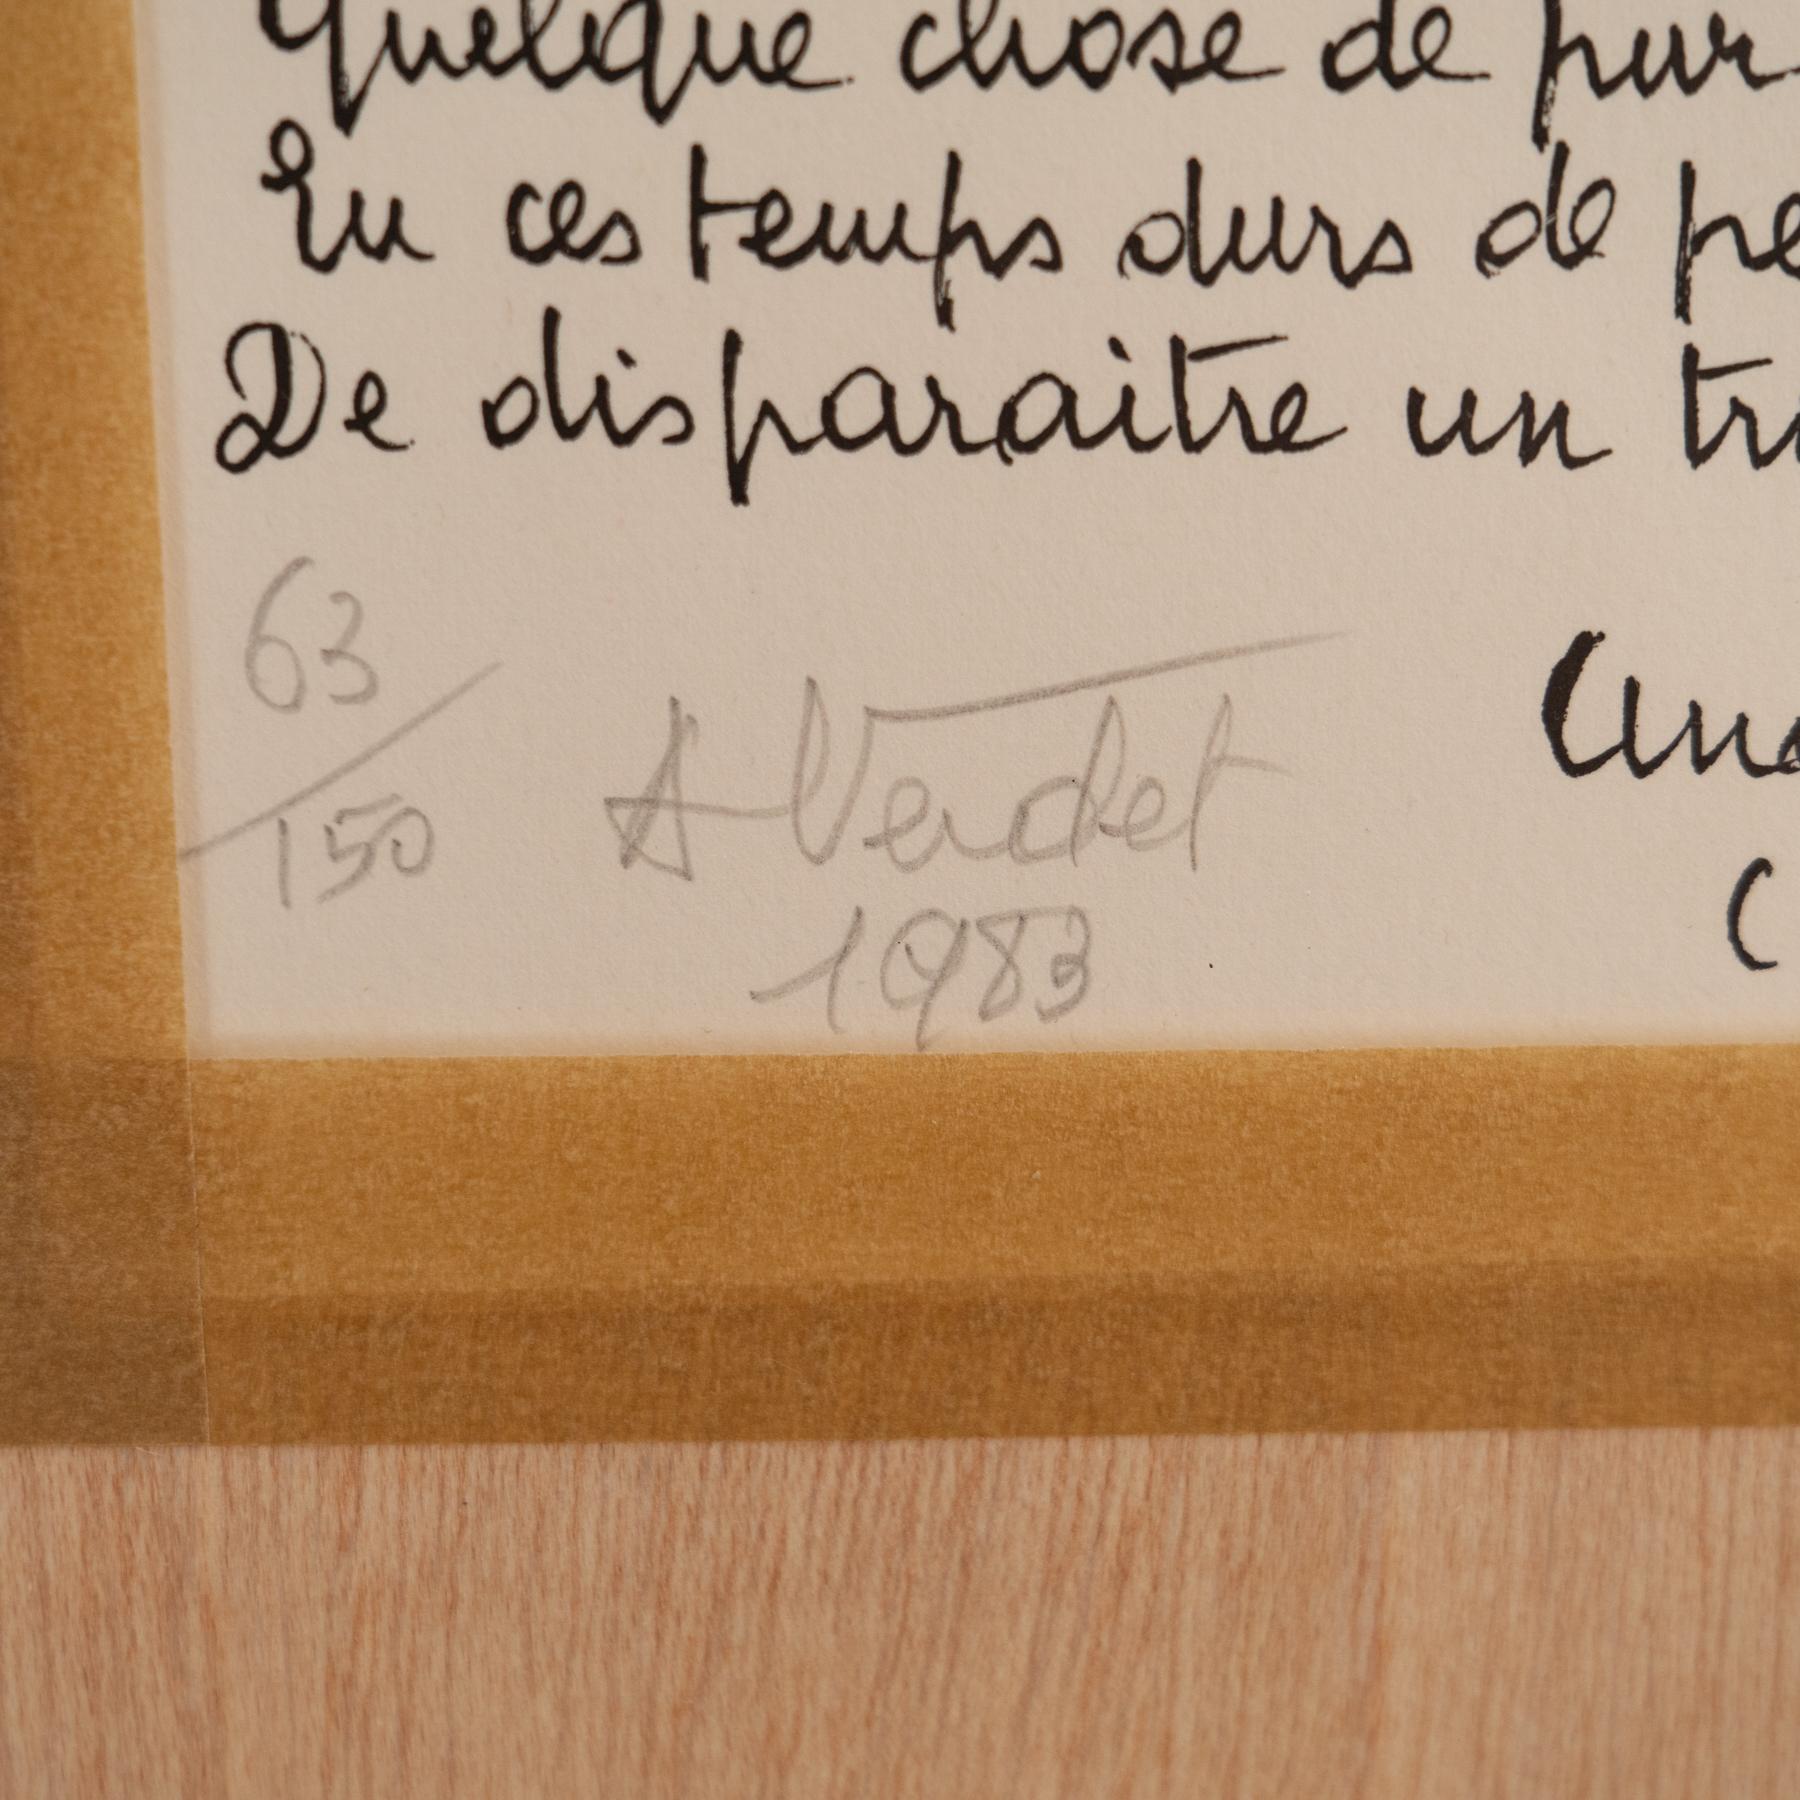 Quelque chose de pur
En ces temps durs de pe
De disparaitre un tri
63/150
A Verdet
1983